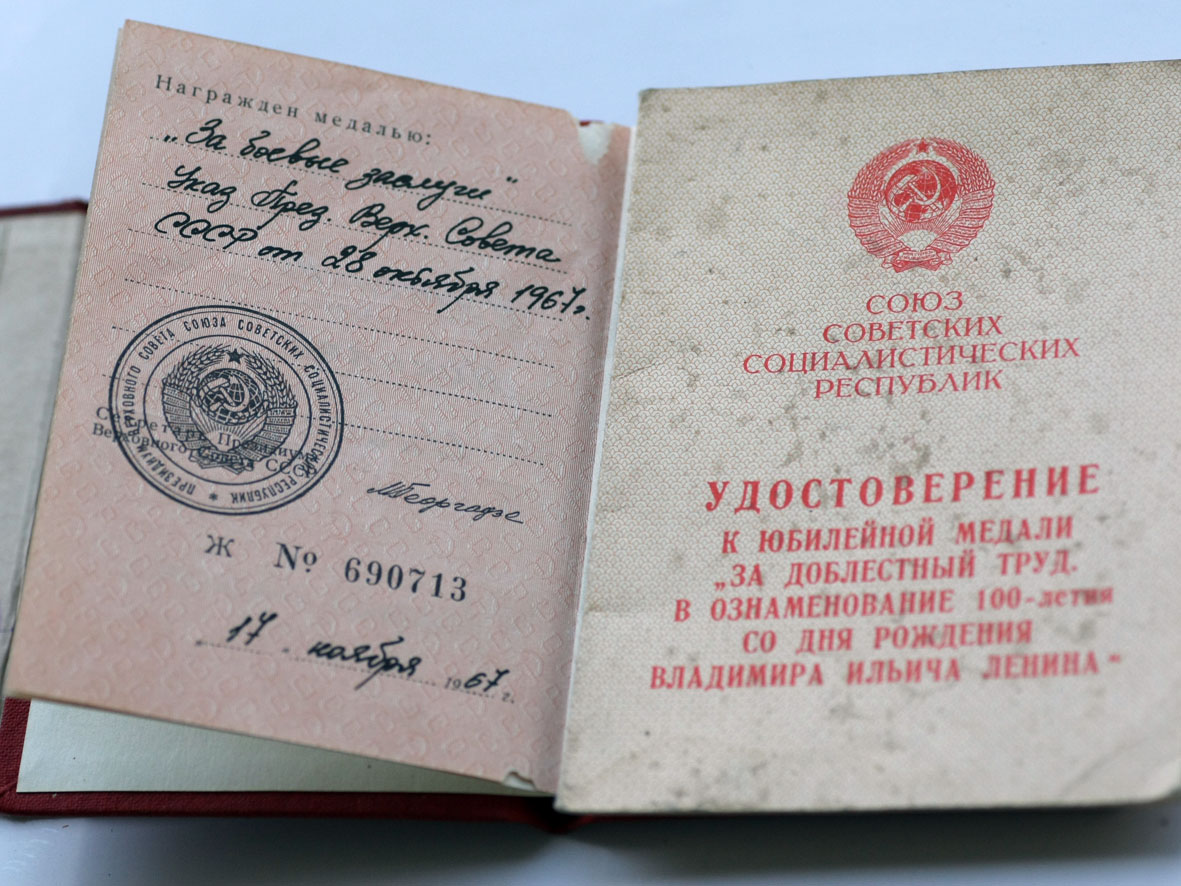 Награжден медалью:
„За боевые заслуги"
Указ През. Верх. Совета
СССР от 28 октября 1967г.
ПРЕЗИДИУМ ВЕРХОВНОГО СОВЕТА СОЮЗА СОВЕТСКИХ СОЦИАЛИСТИЧЕСКИХ РЕСПУБЛИК *
Секретарь Президиума
Верховного Совета СССР
МГеоргадзе
Ж № 690713
17 ноября 1967 г.
СОЮЗ
СОВЕТСКИХ
СОЦИАЛИСТИЧЕСКИХ
РЕСПУБЛИК
УДОСТОВЕРЕНИЕ
К ЮБИЛЕЙНОЙ МЕДАЛИ
„ЗА ДОБЛЕСТНЫЙ ТРУД.
В ОЗНАМЕНОВАНИЕ 100-летия
СО ДНЯ РОЖДЕНИЯ
ВЛАДИМИРА ИЛЬИЧА ЛЕНИНА"